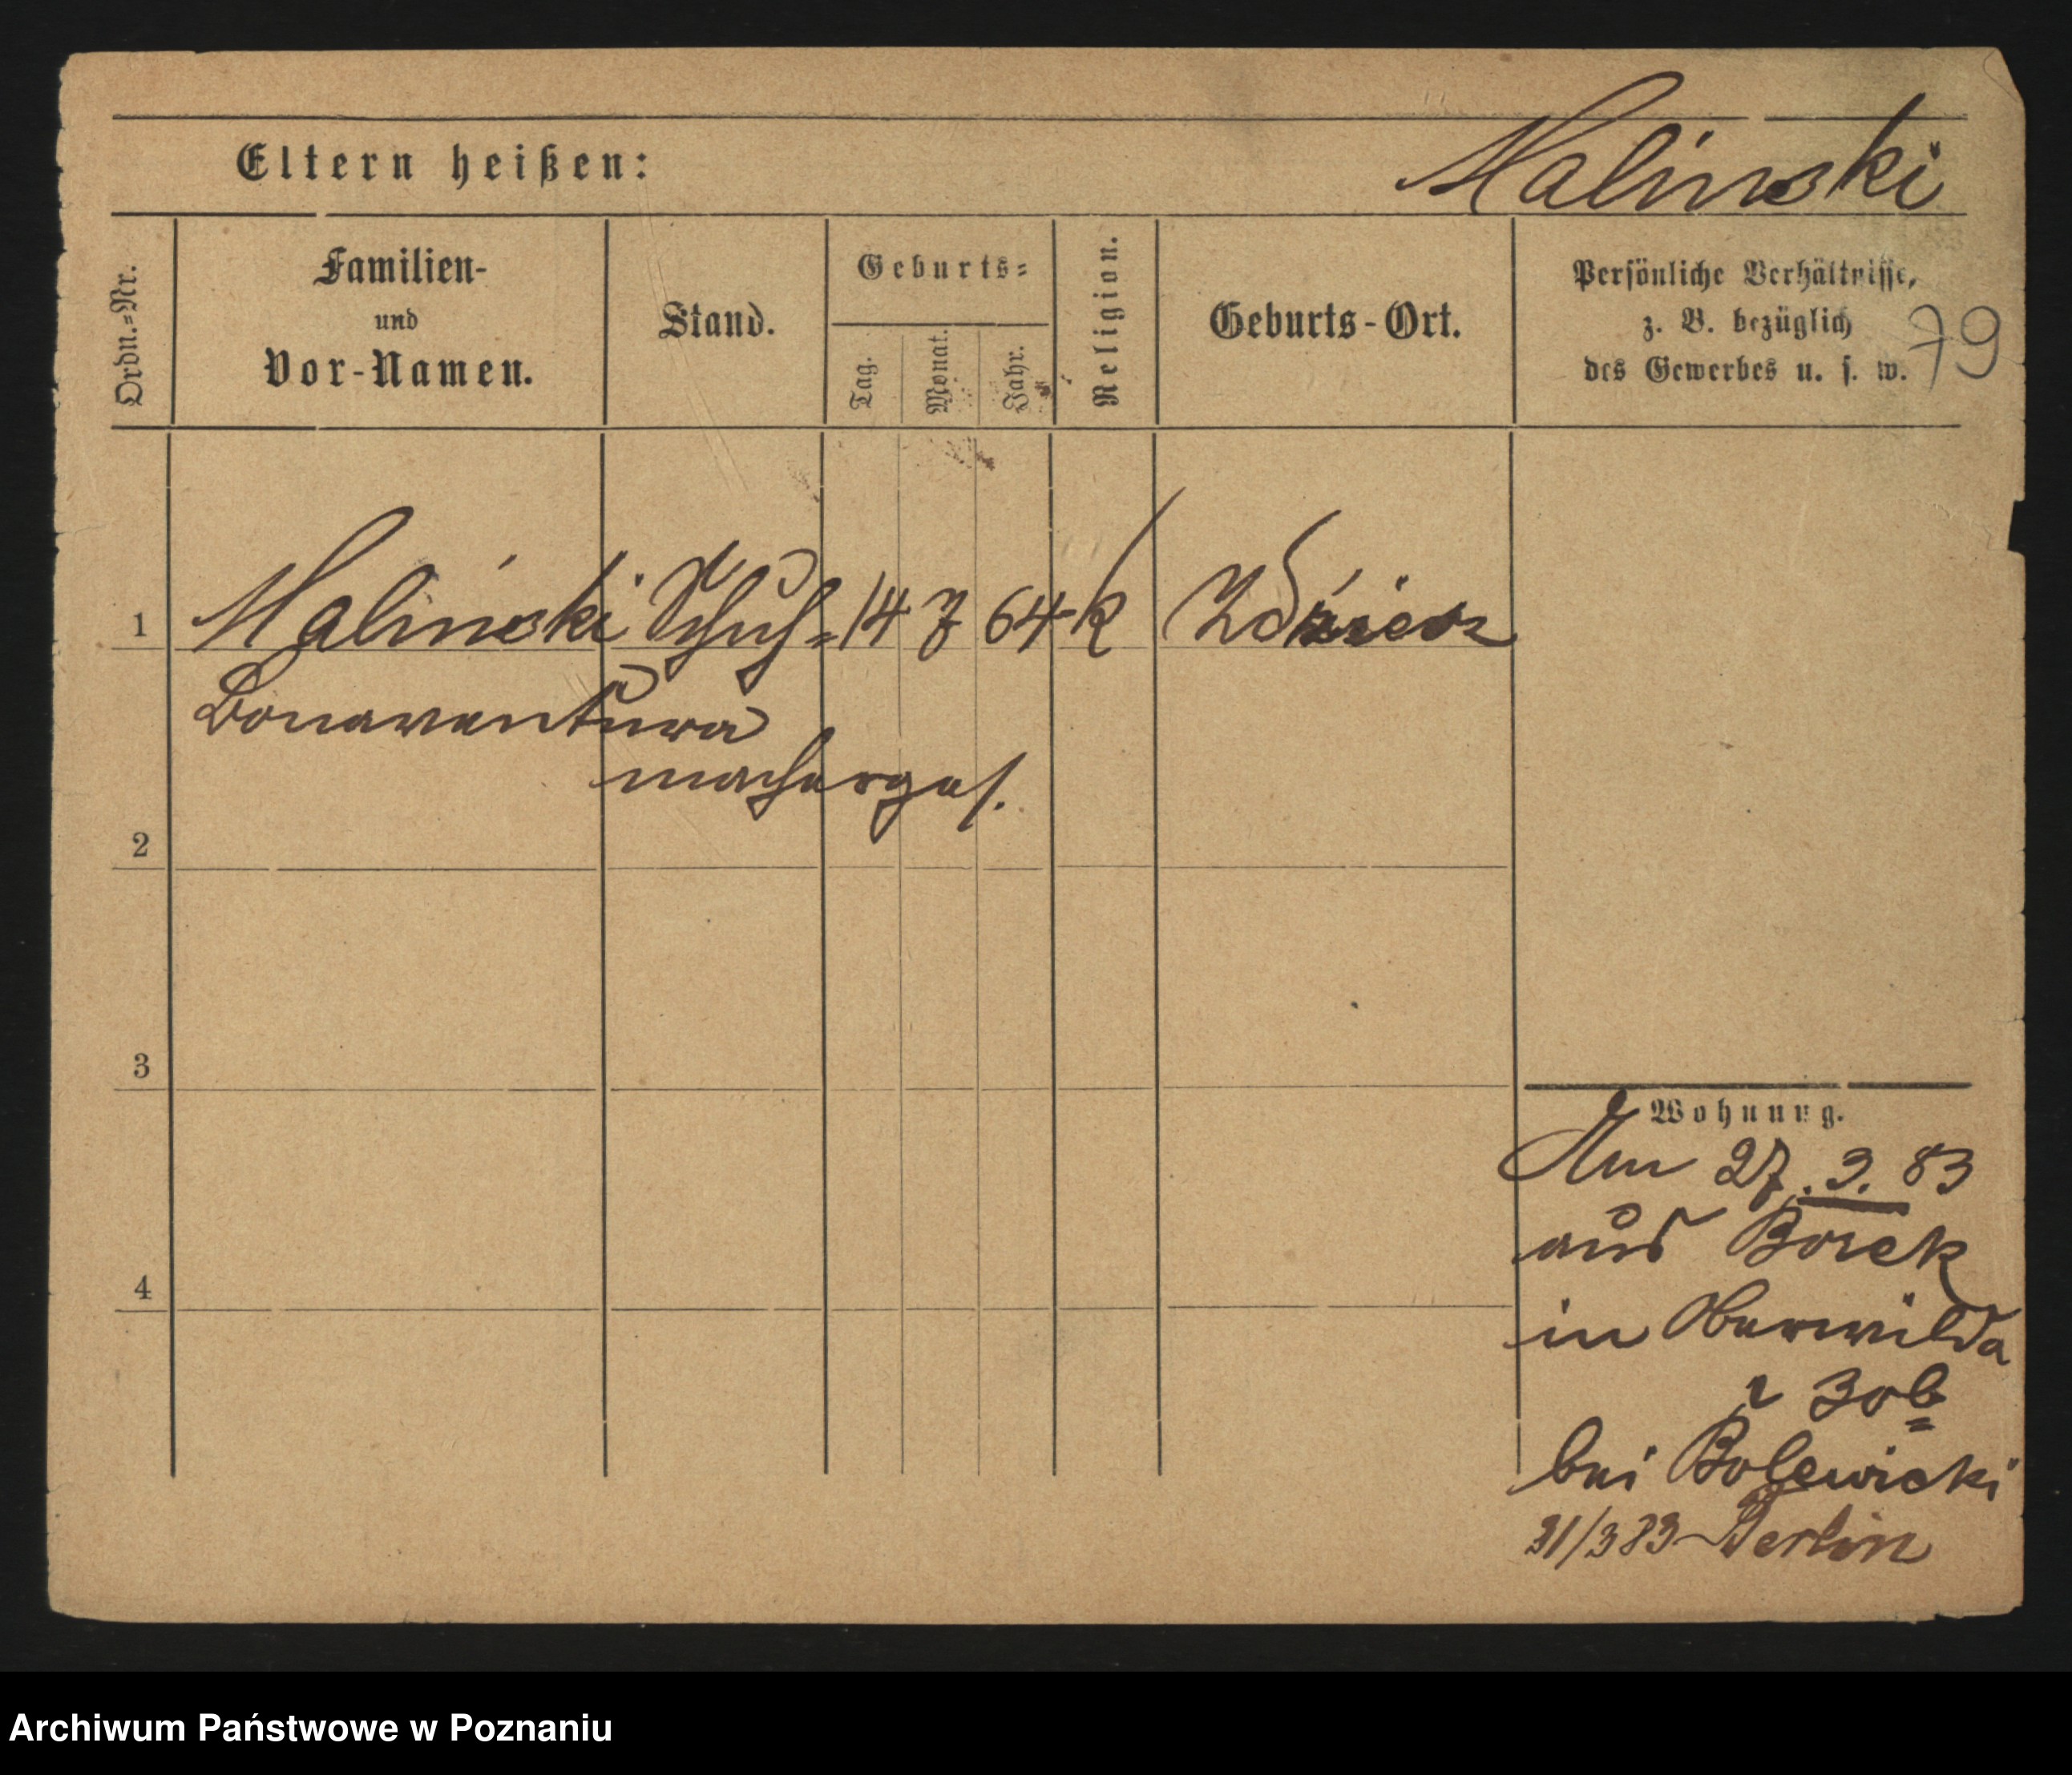 Malinski
Eltern heißen:
Ordn.=Nr.
Familien-
und
Vor-Namen.
Stand.
Geburts=
Tag.
Monat.
Jahr.
Religion.
Geburts-Ort.
Persönliche Verhältnisse,
z. B. bezüglich
des Gewerbes u. s. w.
79
1 Maliński Schuh= 14 7 64 k
Bonawentura
machergес.
2
3
4
Wohnung.
Am 27.3.83
aus Borek
in Oberwilda
30b
bei Bolewicki
31/3 83 Berlin
Archiwum Państwowe w Poznaniu